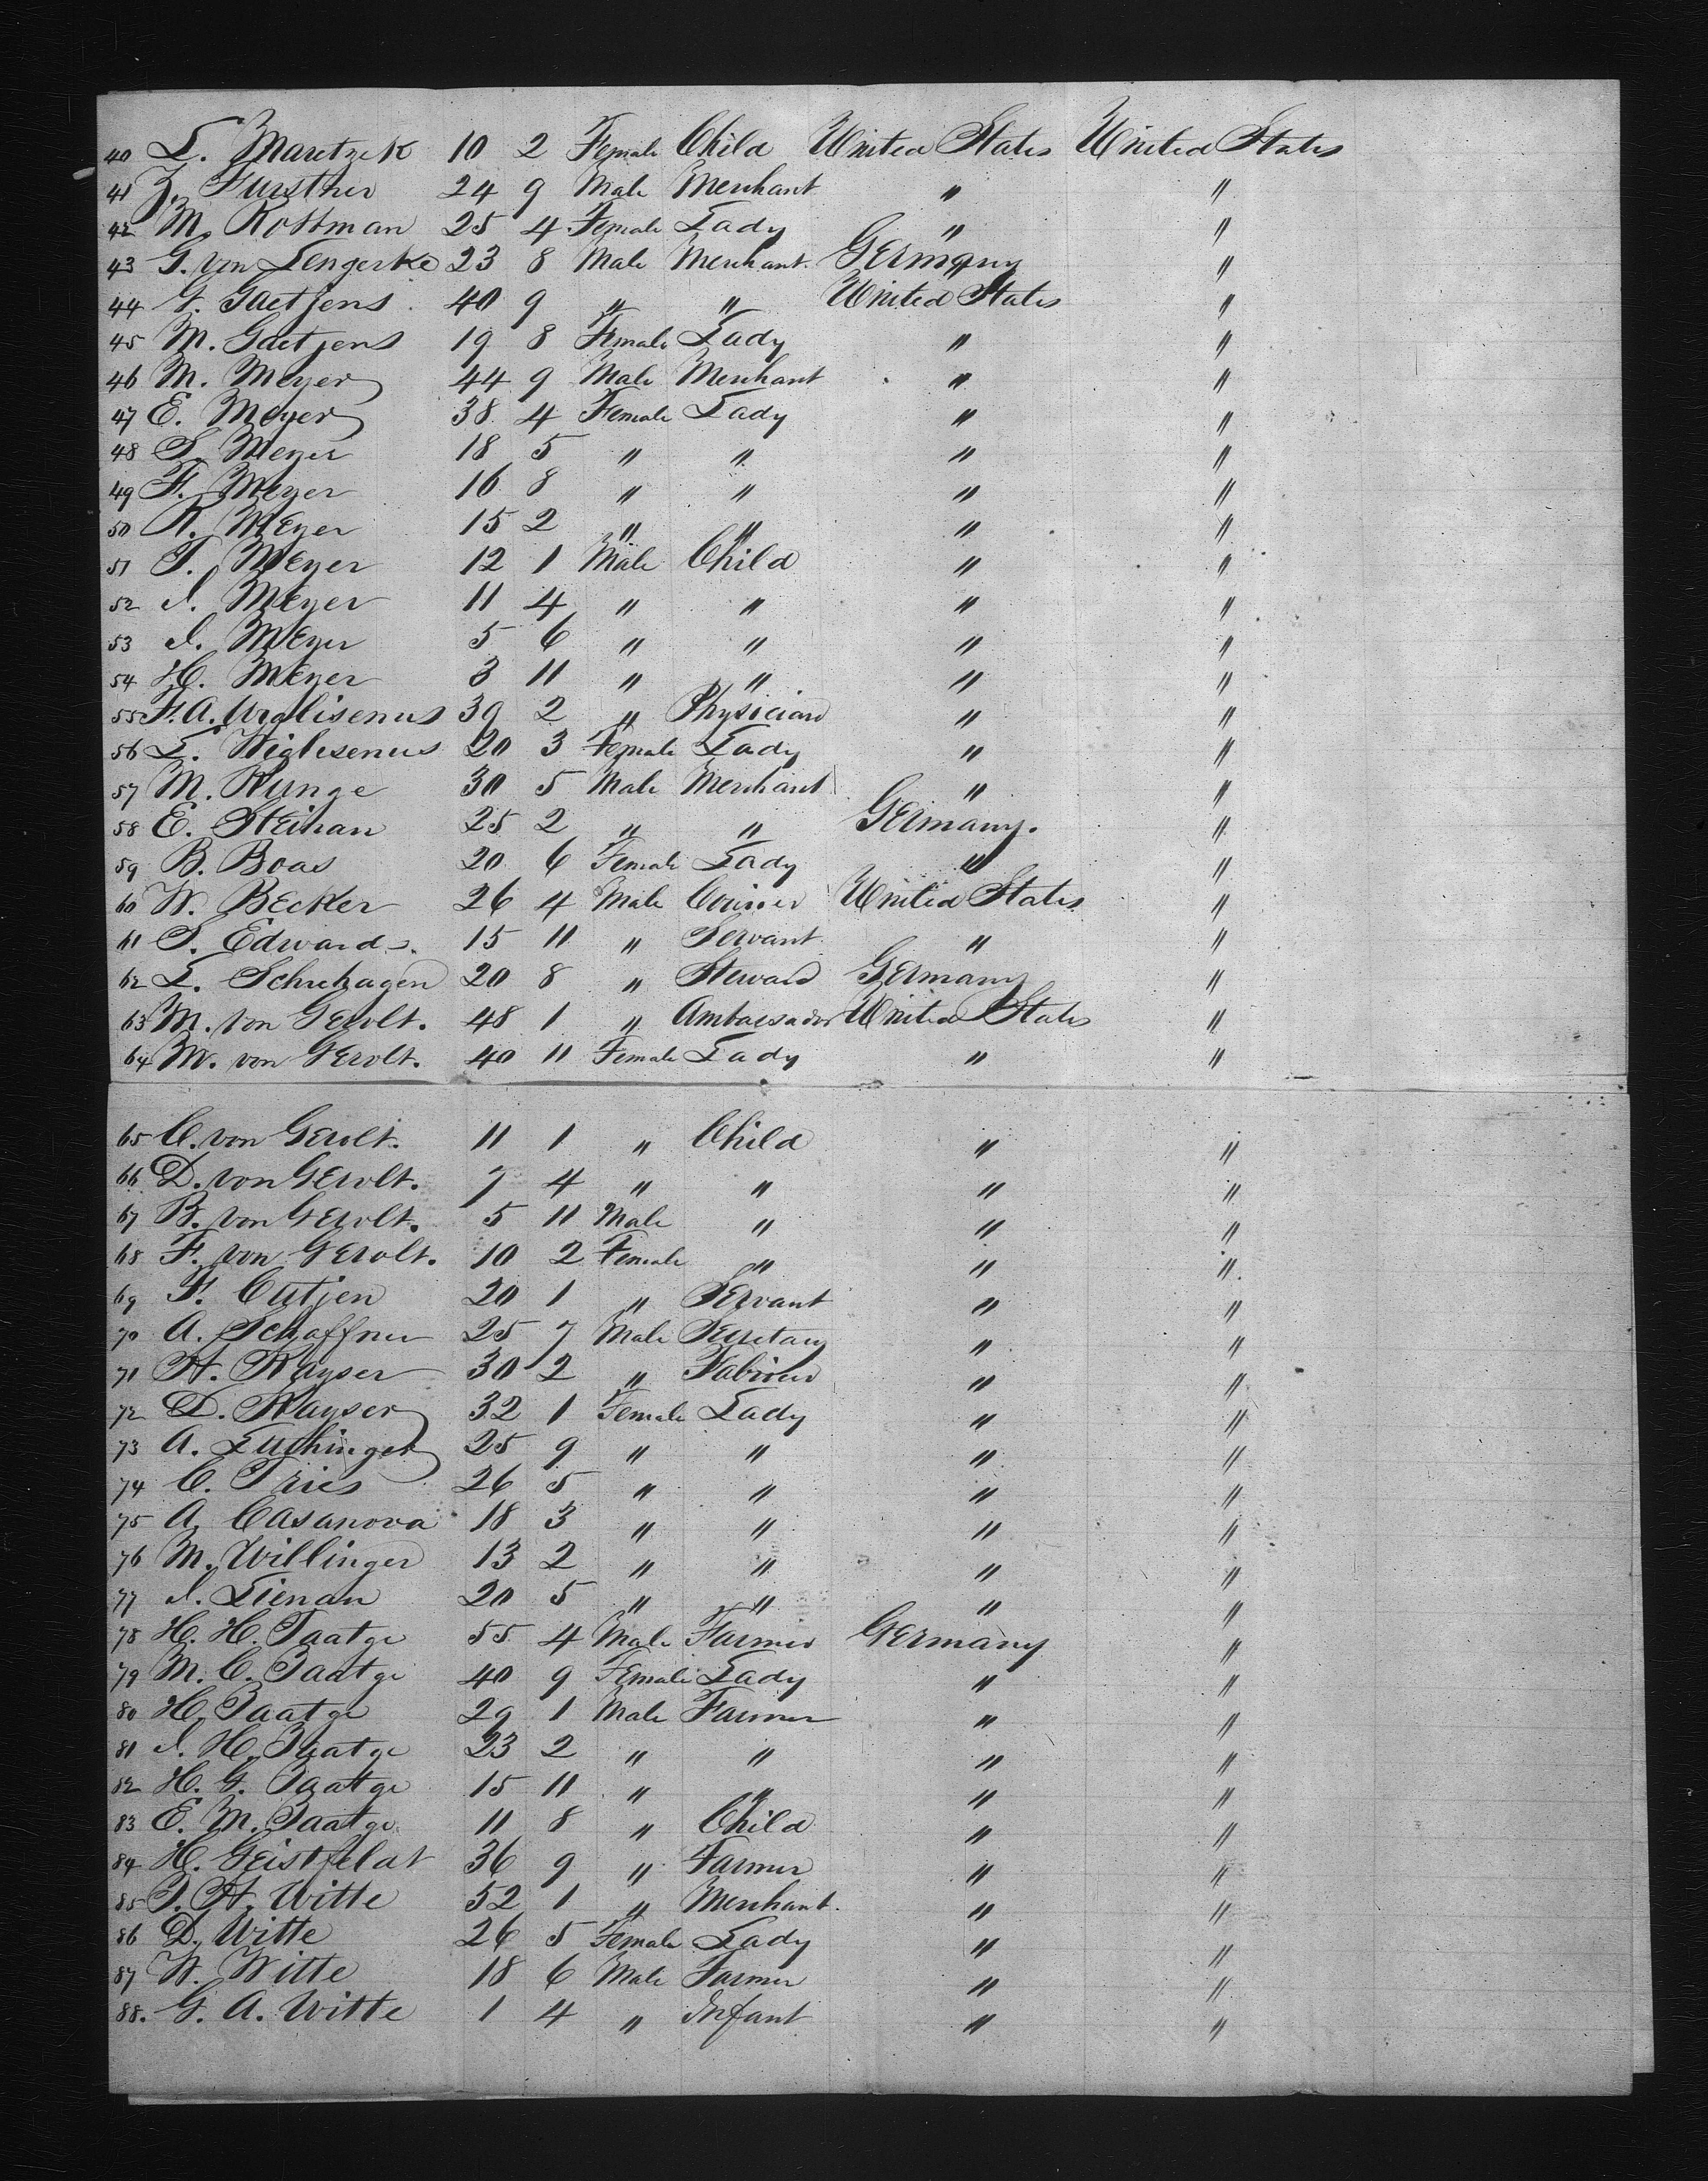 40 L. Maretzek 10 2 Female Child United States United States
41 Z. Fursther 24 9 Male Merchant " "
42 M. Rottman 25 4 Female Lady " "
43 G. von Lengerke 23 8 Male Merchant. Germany "
44 G. Gaetjens 40 9 " " United States "
45 M. Gaetjens 19 8 Female Lady " "
46 M. Meyer 44 9 Male Merchant " "
47 E. Meyer 38 4 Female Lady " "
48 S. Meyer 18 5 " " " "
49 F. Meyer 16 8 " " " "
50 R. Meyer 15 2 " " " "
51 T. Meyer 12 1 Male Child " "
52 J. Meyer 11 4 " " " "
53 J. Meyer 5 6 " " " "
54 H. Meyer 3 11 " " " "
55 F. A. Wiglisenus 39 2 " Physician " "
56 L. Wiglisenus 20 3 Female Lady " "
57 M. Runge 30 5 Male Merchant " "
58 E. Steinan 25 2 " " Germany. "
59 B. Boas 20 6 Female Lady " "
60 W. Becker 26 4 Male Courier United States "
61 S. Edwards. 15 11 " Servant " "
62 L. Schuhagen 20 8 " Steward Germany "
63 M. von Gerolt. 48 1 " Ambassador United States "
64 M. von Gerolt. 40 11 Female Lady " "
65 C. von Gerolt. 11 1 " Child " "
66 D. von Gerolt. 7 4 " " " "
67 B. von Gerolt. 5 11 Male " " "
68 F. von Gerolt. 10 2 Female " " "
69 F. Cutjen 20 1 " Servant " "
70 A. Schaffner 25 7 Male Secretary " "
71 H. Kayser 30 2 " " "
72 D. Kayser 32 1 Female Lady " "
73 A. Luchinger 25 9 " " " "
74 C. Fries 26 5 " " " "
75 A. Casanova 18 3 " " " "
76 M. Willinger 13 2 " " " "
77 J. Lienau 20 5 " " " "
78 H. H. Taatge 55 4 Male Farmer Germany "
79 M. C. Taatge 40 9 Female Lady " "
80 H. Taatge 29 1 Male Farmer " "
81 J. H. Taatge 23 2 " " " "
82 H. G. Taatge 15 11 " " " "
83 E. M. Taatge 11 8 " Child " "
84 H. Geistfelat 36 9 " Farmer " "
85 J. H. Witte 52 1 " Merchant. " "
86 D. Witte 26 5 Female Lady " "
87 W. Witte 18 6 Male Farmer " "
88. G. A. Witte 1 4 " Infant " "